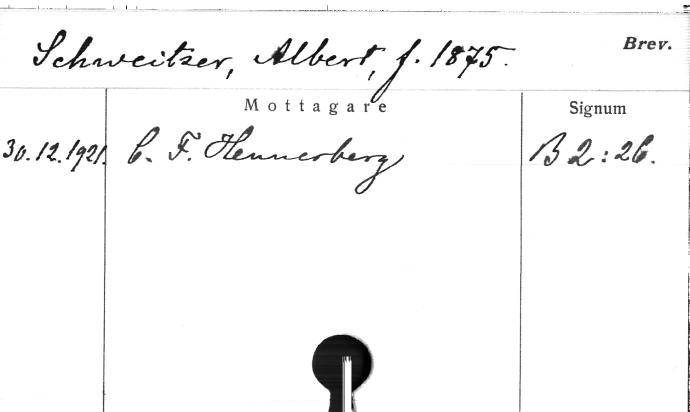 Schweitzer, Albert, f. 1875.
Brev.
Mottagare
Signum
30.12.1921. C. F. Hennerberg B 2:26.